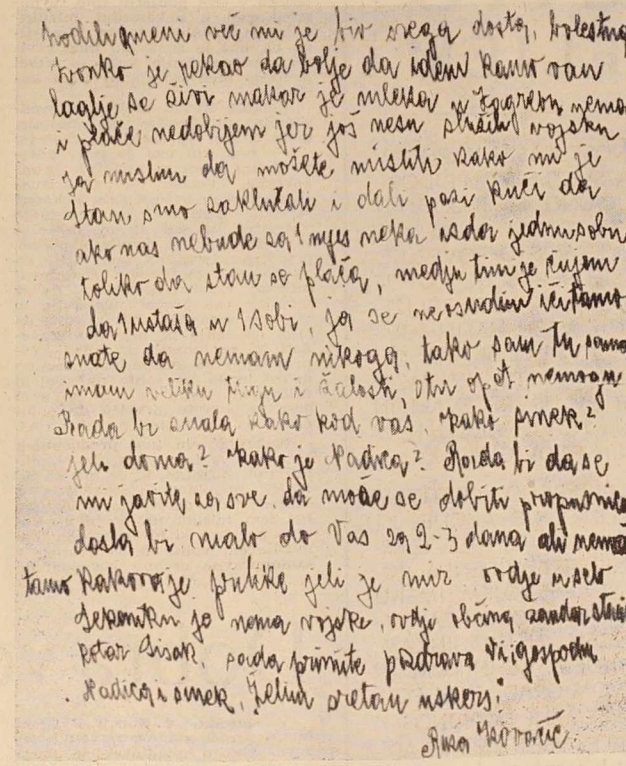 hodili, meni već mi je bio svega dosta, bolestna
Zvonko je rekao da bolje da idem kamo van
laglje se živi makar je mleka u Zagrebu nema
i plaće nedobijem jer još nesu slušili vojsku
ja mislim da možete misliti kako mi je
Stan smo zaključali i dali pazi kući da
ako nas nebude za 1 mjes neka izda jednu sobu
toliko da stan se plača, medju tim je čujem
da 1 ustaša u 1 sobi, ja se neosudim ići tamo
znate da nemam nikoga, tako sam tu samo
imam veliku tugu i žalost, otu opet nemogu
Rada bi znala kako kod vas, kako sinek?
jeli doma? kako je Nadica? Rada bi da se
mi javite za sve. da može se dobiti propusnica
dosla bi malo do Vas za 2-3 dana ali nema
tamo kakova je prilike jeli je mir ovdje u selo
Lekeniku je nema vojske, ovdje občina
kotar Sisak, sada primite pozdrava Vi, gospodin
Nadica i sinek, Želim sretan uskers!
Ruža Kovačić